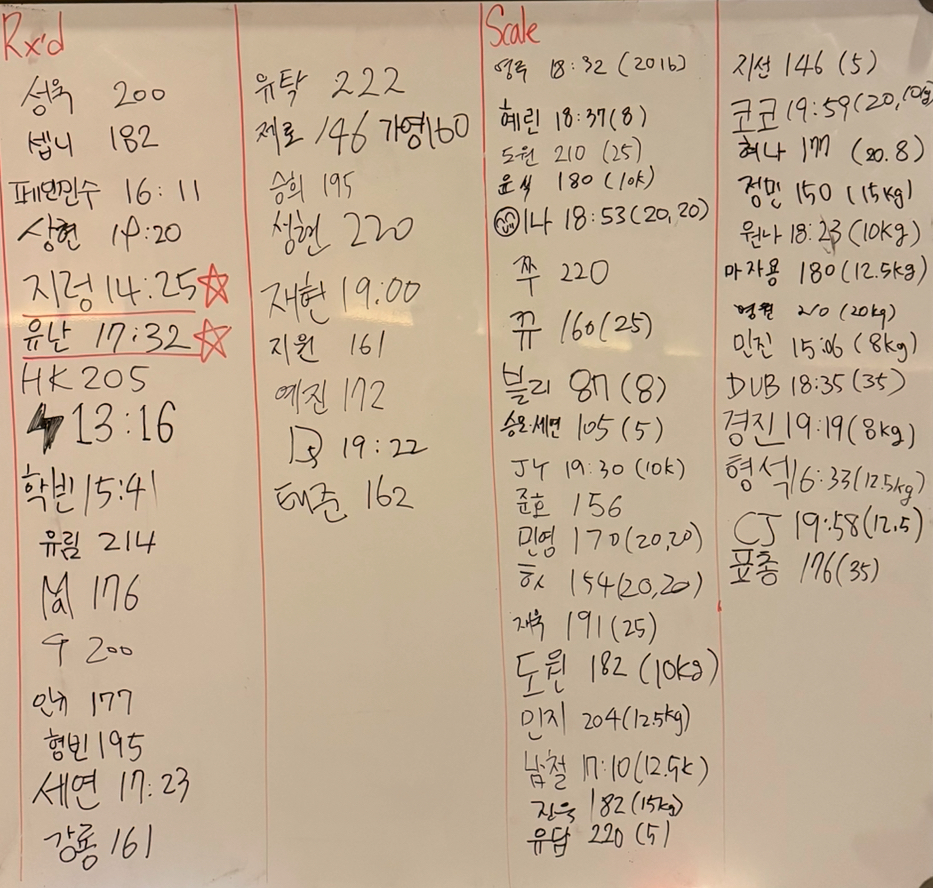 Rx'd
성욱 200
셉니 182
페인민수 16:11
상현 :20
지렁 14:25
유난 17:32
HK 205
13:16
학빈 15:41
유림 214
176
200
177
형빈 195
세연 17:23
강룡 161
유탁 222
제로 146 가영 160
승희 195
성현 220
재현 19:00
지원 161
예진 172
19:22
태준 162
Scale
영루 18:32 (20lb)
혜린 18:37 (8)
도원 210 (25)
윤식 180 (10k)
나 18:53 (20,20)
쭈 220
뀨 160 (25)
블리 87 (8)
승오·세연 105 (5)
JY 19:30 (10k)
준호 156
민영 170 (20,20)
154 (20,20)
재욱 191 (25)
도원 182 (10kg)
민지 204 (12.5kg)
남철 17:10 (12.5k)
진욱 182 (15kg)
유답 220 (5)
지선 146 (5)
코코 19:59 (20,
혀나 177 (20.8)
정민 150 (15kg)
원나 18:23 (10kg)
마자용 180 (12.5kg)
영원 210 (20kg)
민진 15:06 (8kg)
DUB 18:35 (35)
경진 19:19 (8kg)
형석 16:33 (12.5kg)
CJ 19:58 (12.5)
표총 176 (35)